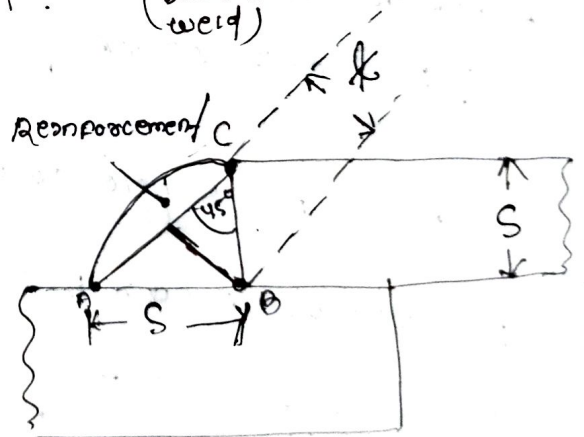 weld)
Reinforcement
C
t
45°
S
A
B
S